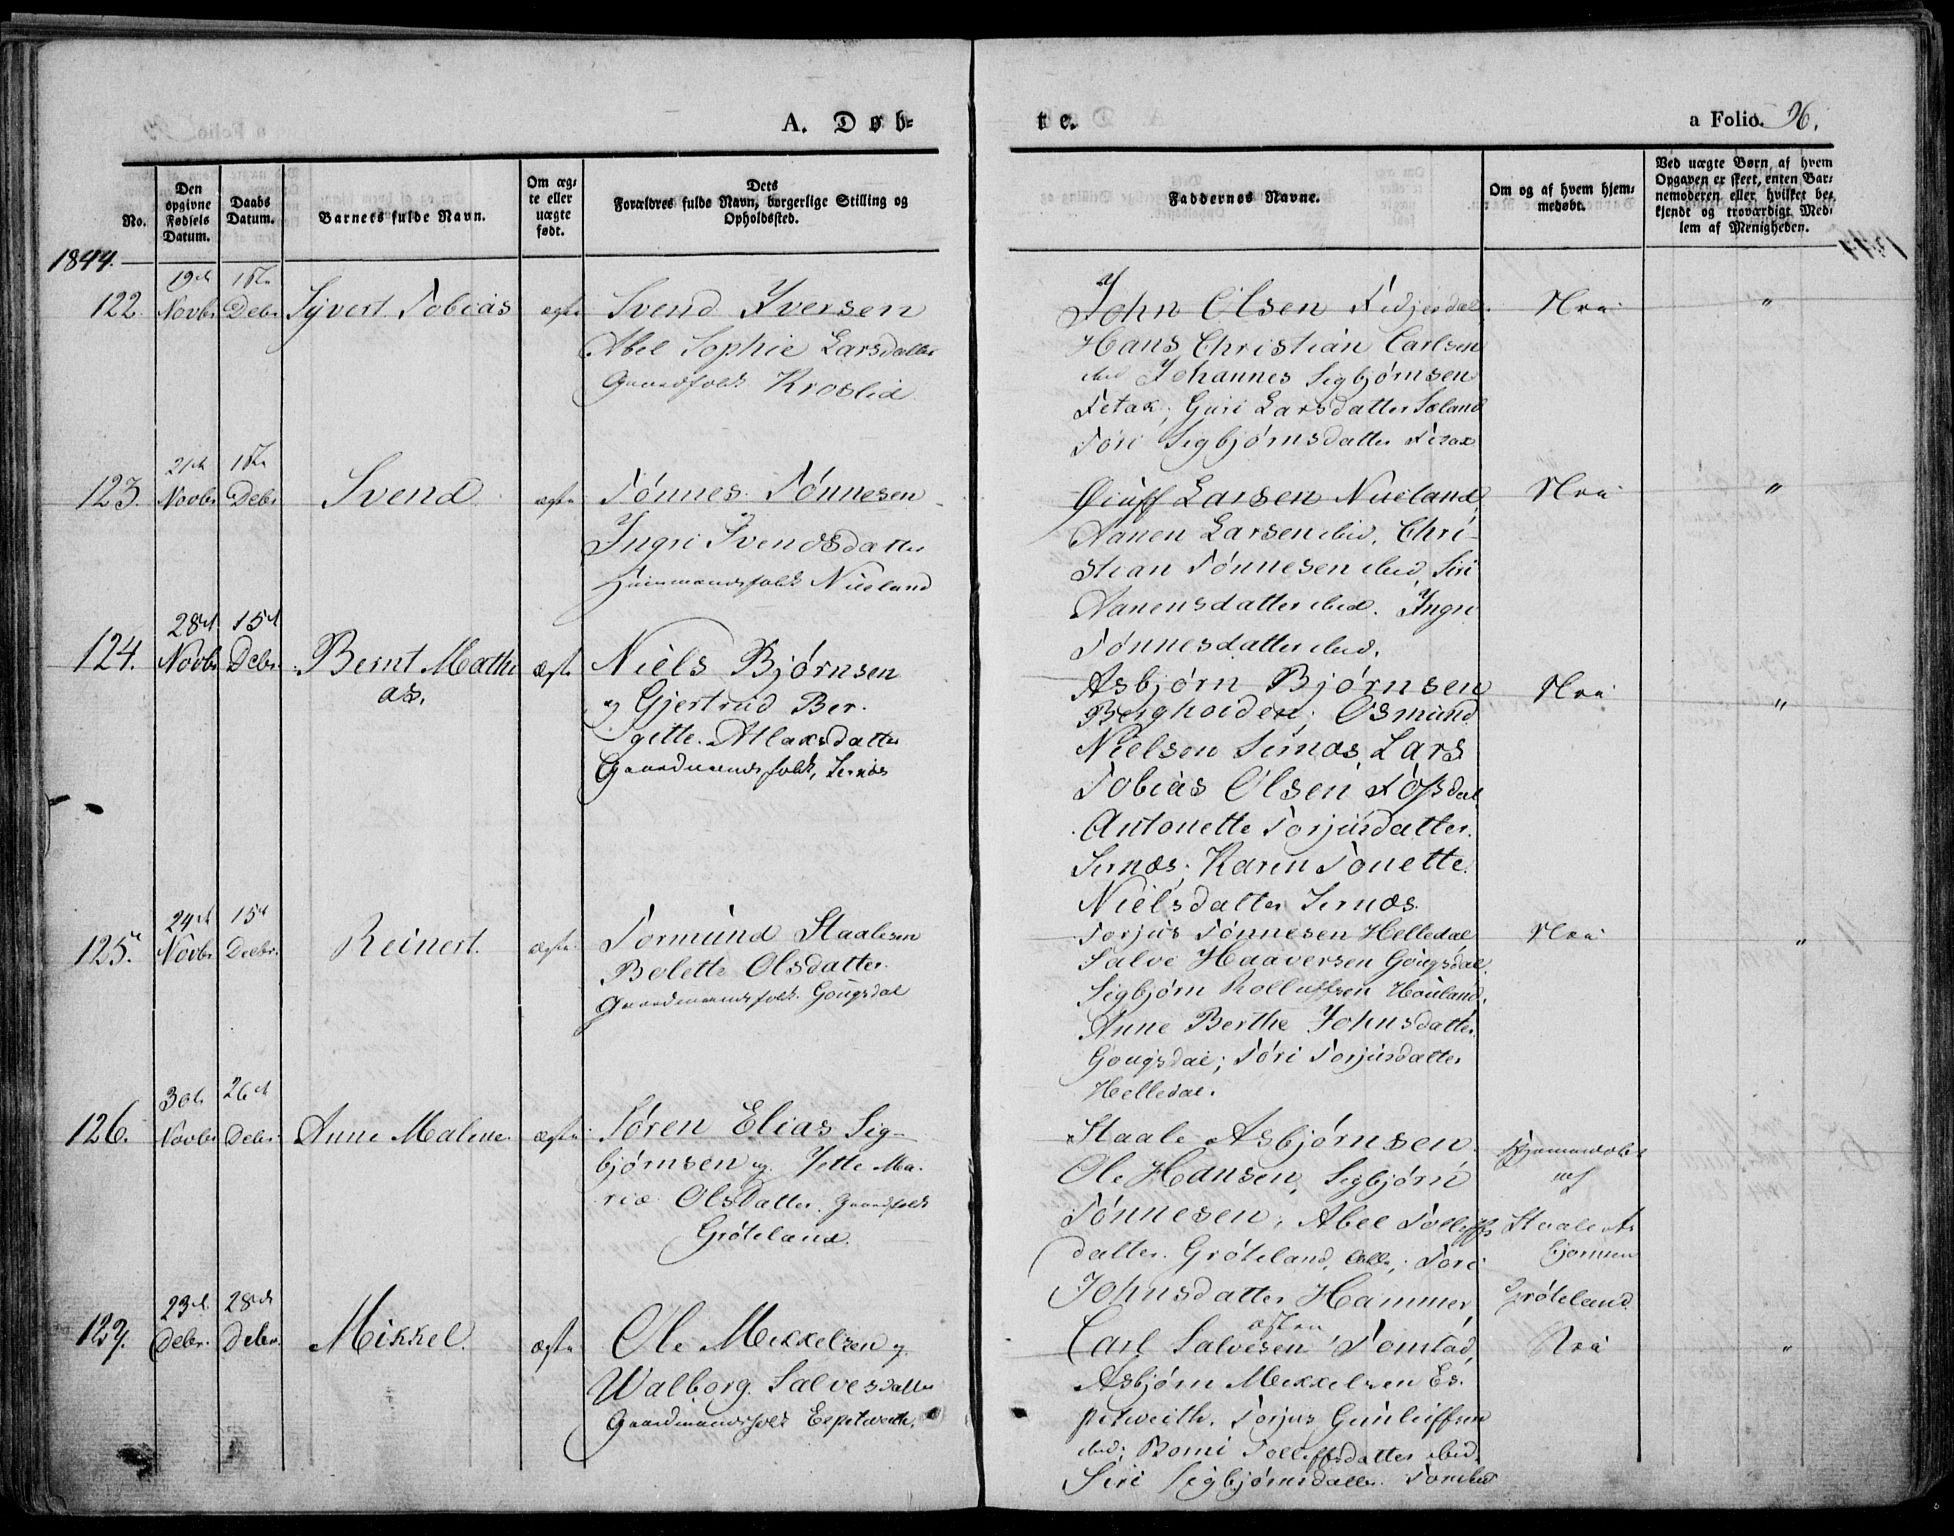 A. Døb=
te.
a Folio. 96.
No.
Den opgivne Fødsels Datum.
Daabs Datum.
Barnets fulde Navn.
Om æg= te eller uægte født.
Dets Forældres fulde Navn, borgerlige Stilling og Opholdssted.
Faddernes Navne.
Om og af hvem hjem= medøbt.
Ved uægte Børn, af hvem Opgaven er skeet, enten Bar= nemoderen eller hvilket be= kjendt og troværdigt Med= lem af Menigheden.
1844.
122. 19de Novbr 15de Debr Syvert Tobias ægte
Svend Iversen
Abel Sophie Larsdatter
Gaardfolk Kroslid
John Olsen Fidjedal
Hans Christian Carlsen
ibid Johannes Sigbjørnsen
Fitak; Guri Larsdatter Sæland
Tøri Sigbjørnsdatter Fitak
Nei "
123. 21de Novbr 15de Debr Svend ægte
Tønnes Tønnesen
Ingri Svendsdatter
Huusmandsfolk Nueland
Øiuff Larsen Nueland
Aanen Larsen ibid, Chri-
stian Tønnesen ibid, Siri
Aanensdatter ibid. Ingri
Tønnesdatter ibid.
Nei "
124. 28de Novbr 15de Debr. Bernt Mathi
as. ægte
Niels Bjørnsen
og Gjertrud Ber-
gitte Atlaksdatter
Gaardmandsfolk, Sirnæs
Asbjørn Bjørnsen
Berghoiden; Osmund
Nielsen Sirnæs, Lars
Tobias Olsen Fosdal
Antonette Torjusdatter
Sirnæs; Karen Tonette
Nielsdatter Sirnæs
Nei "
125. 24de Novbr 15de Decbr. Reinert. ægte
Tormund Staalesen
Bolette Olsdatter.
Gaardmandsfolk. Gougsdal
Torjus Tønnesen Helledal
Salve Haaversen Gougsdal
Sigbjørn Rolleffsen Houland.
Anne Berthe Johnsdatter
Gougsdal; Tøri Torjusdatter
Helledal.
Nei "
126. 30de Novbr 26de Debr. Anne Malene. ægte
Søren Elias Sig-
bjørnsen og Jette Ma-
rie Olsdatter. Gaardfolk
Grøteland.
Staale Asbjørnsen
Ole Hansen, Sigbjørn
Tønnesen, Abel Tolleffs
datter. Grøteland, alle; Tøri
Johnsdatter Hammer
Hjemmedøbt
af
Staale As
bjørnsen
Grøteland
127. 23de Debr. 28de Debr. Mikkel. ægte
Ole Mikkelsen og
Walborg Salvesdatter
Gaardmandsfolk Espetveith.
Carl Salvesen Tomstad,
Asbjørn Mikkelsen Es-
petveith. Torjus Gunleiffsen
ibid; Romi Tolleffsdatter ibid.
Siri Sigbjørnsdatter Tomstad
Nei "